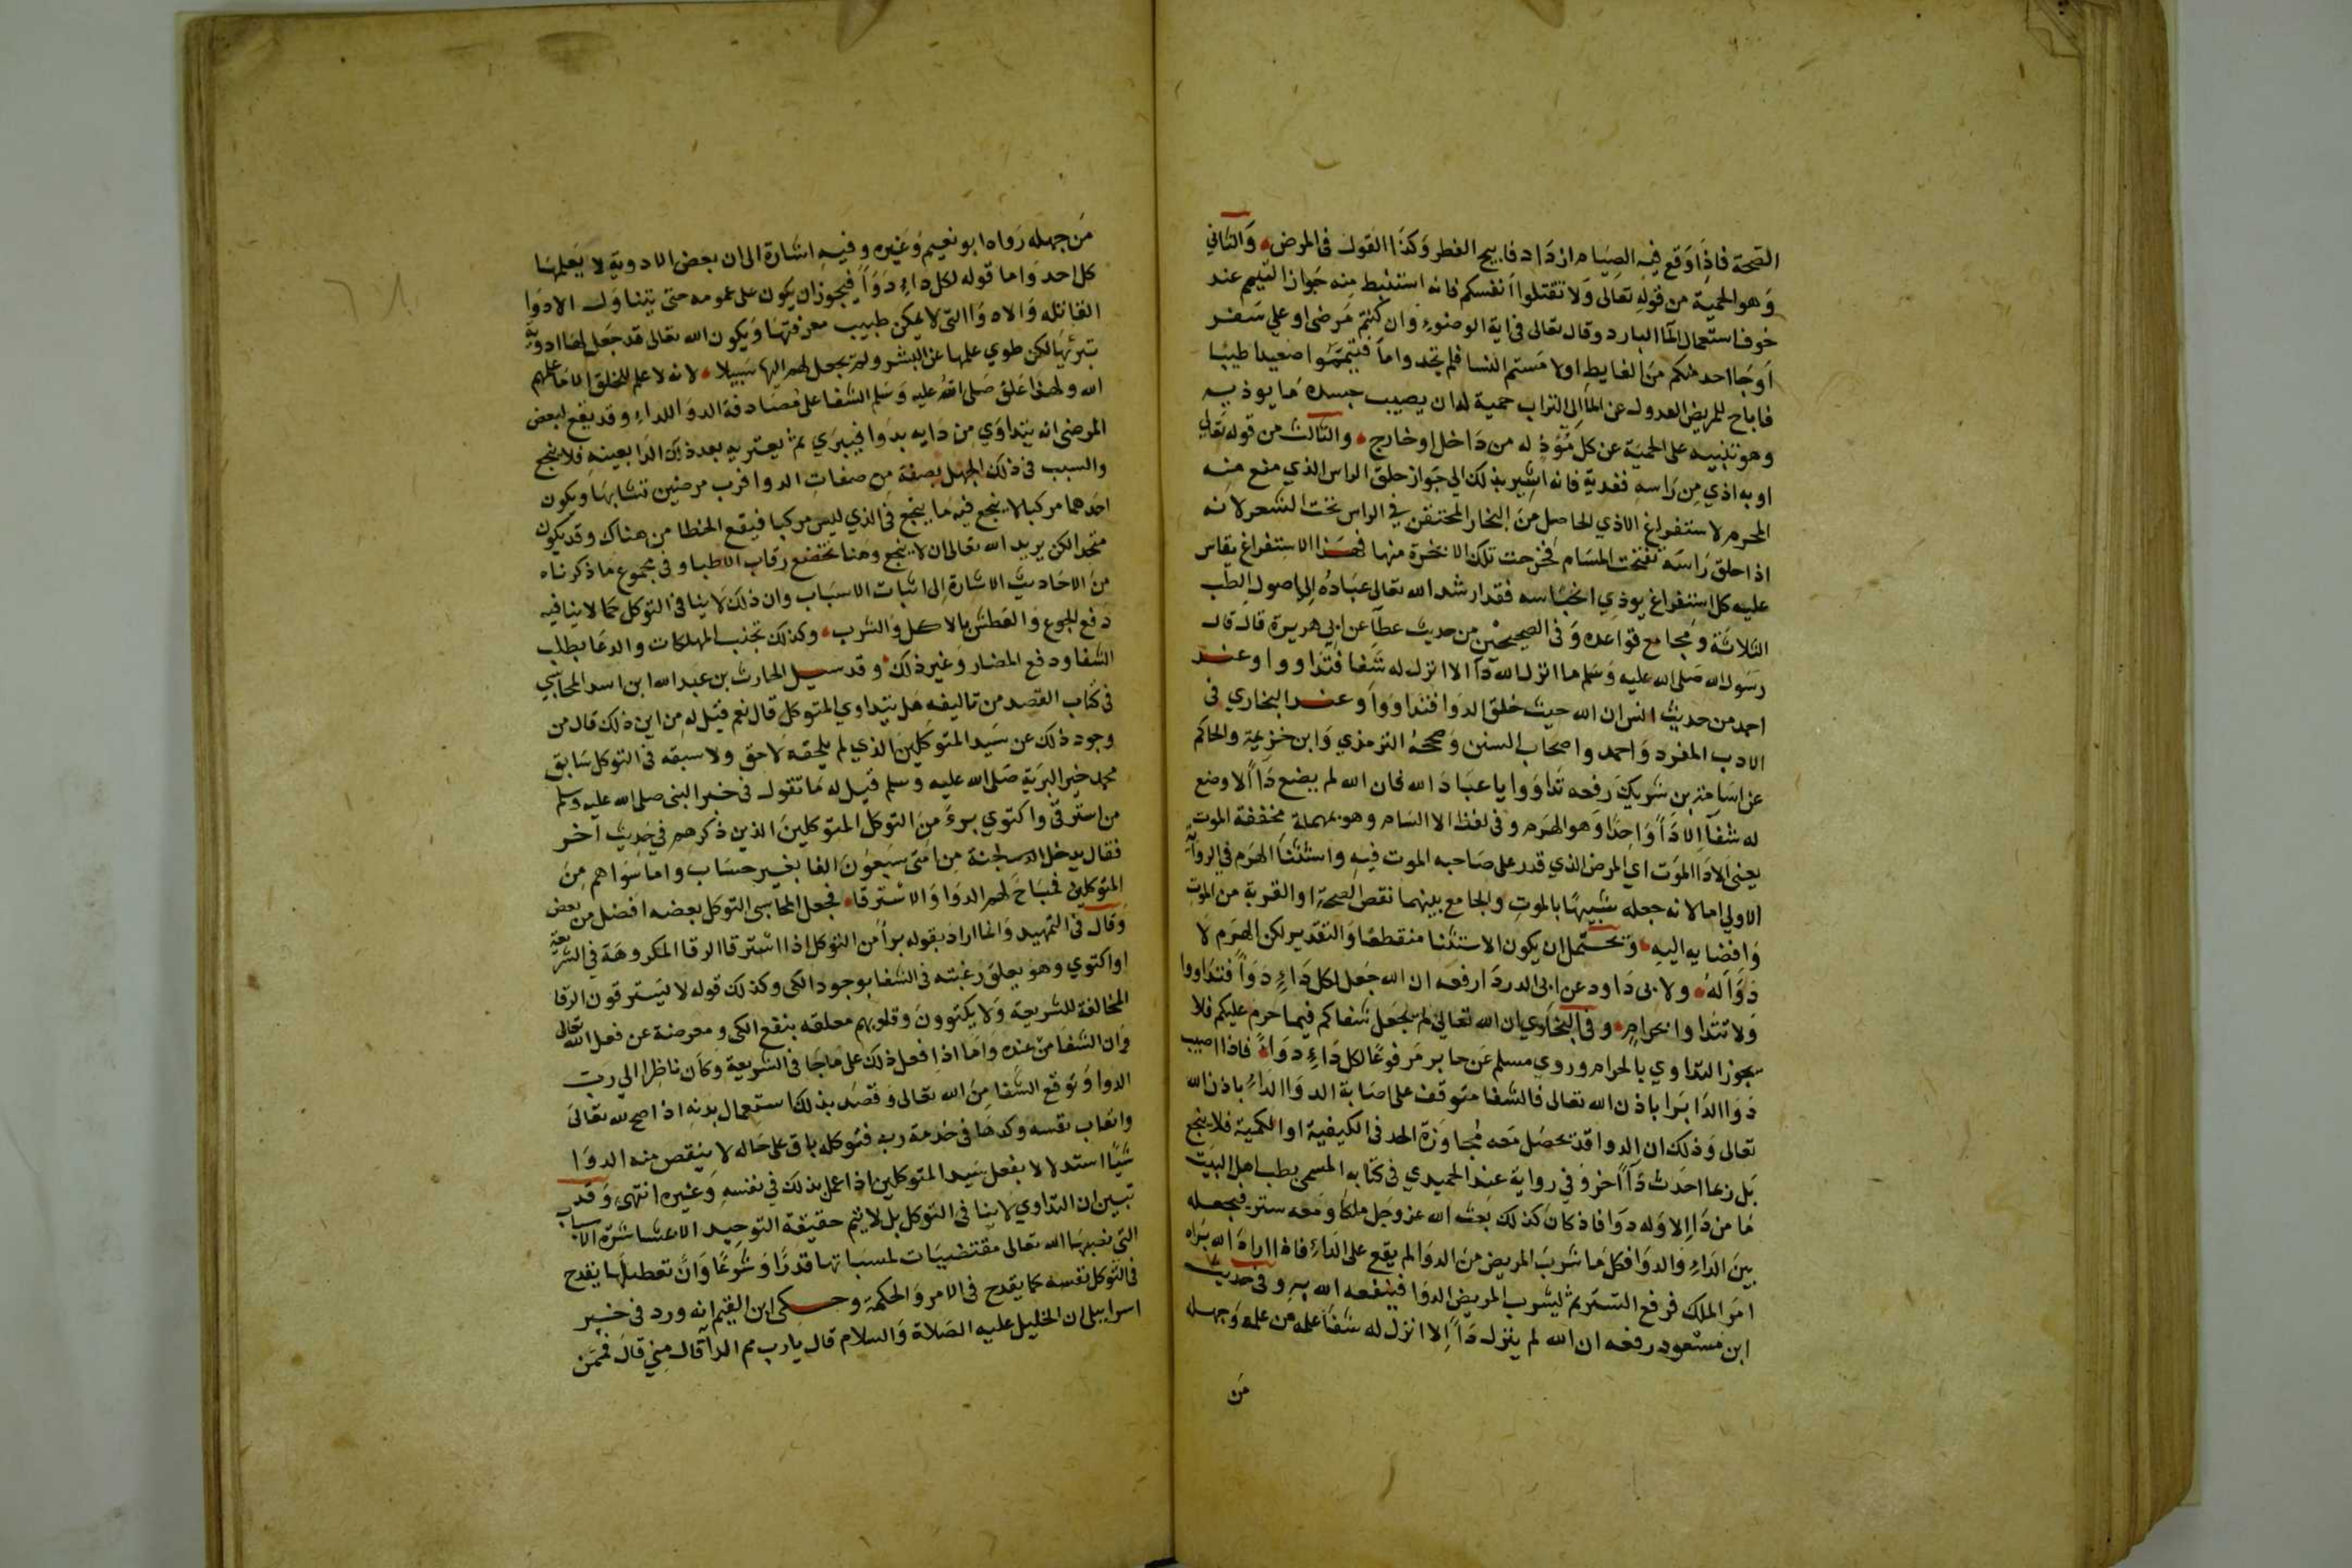 الصحة فاذا وقع فيه الصيام ازداد فابيح الفطر وكذا القول في المرض والثاني
وهو الحمية من قوله تعالى ولا تقتلوا انفسكم فانه استنبط منه جواز التيمم عند
خوف استعمال الماء البارد وقال تعالى في اية الوضوء وان كنتم مرضى او علي سفر
او جا احد منكم من الغايط او لامستم النسا فلم تجدوا ماء فتيمموا صعيدا طيبا
فاباح للمريض العدول عن الماء الي التراب حمية له ان يصيب جسده ما يوذيه
وهو تنبيه على الحمية عن كل مؤذ له من داخل او خارج والثالث من قوله تعالى
او به اذي من راسه ففدية فانه اشير بذلك الي جواز حلق الراس الذي منع منه
المحرم لاستفراغ الاذي الحاصل من البخار المحتقن في الراس تحت الشعر لانه
اذا حلق راسه تفتحت المسام فخرجت تلك الابخرة منها فهذا الاستفراغ يقاس
عليه كل استفراغ يوذي انحباسه فقد ارشد الله تعالى عباده الي اصول الطب
الثلاثة ومجامع قواعده وفي الصحيحين من حديث عطآ عن ابي هريرة قال قال
رسول الله صلى الله عليه وسلم ما انزل الله دآ الا انزل له شفا فتداووا وعند
احمد من حديث انس ان الله حيث خلق الدوا فتداووا وعند البخاري في
الادب المفرد واحمد واصحاب السنن وصححه الترمذي وابن خزيمة والحاكم
عن اسامة بن شريك رفعه تداووا يا عباد الله فان الله لم يضع داء الا وضع
له شفآ الا داء واحدا وهو الهرم وفي لفظ الا السام وهو بمهملة مخففة الموت
يعني الا دا الموت اي المرض الذي قدر على صاحبه الموت فيه واستثنا الهرم في الرواية
الاولي اما لانه جعله شبيها بالموت والجامع بينهما نقص الصحة او القربة من الموت
وافضايه اليه ويحتمل ان يكون الاستثنا منقطعا والتقدير لكن الهرم لا
دواء له ولابي داود عن ابي الدردا رفعه ان الله جعل لكل داء دواء فتداووا
ولا تتداوا بحرام وفي البخاري ان الله تعالى لم يجعل شفاكم فيما حرم عليكم فلا
يجوز التداوي بالحرام وروي مسلم عن جابر مرفوعا لكل داء دواء فاذا اصيب
دوا الدا برا باذن الله تعالى فالشفا متوقف على اصابة الدوا الداء باذن الله
تعالى وذلك ان الدوا قد يحصل معه مجاوزة الحد في الكيفية او الكمية فلا ينجع
بل ربما احدث دآ اخر وفي رواية عند الحميدي في كتابه المسمى بطب اهل البيت
ما من دا الا وله دوا فاذ كان كذلك بعث الله عز وجل ملكا ومعه ستر فيجعله
بين الداء والدوا فكل ما شرب المريض من الدوا لم يقع على الداء فاذا اراد الله براه
امر الملك فرفع الستر ثم ليشرب المريض الدوا فينفعه الله به وفي حديث
ابن مسعود رفعه ان الله لم ينزل داء الا انزل له شفآ علمه من علمه وجهله
من
من جهله رواه ابو نعيم وغيره وفيه اشارة الى ان بعض الادوية لا يعلمها
كل احد واما قوله لكل داء دواء فيجوز ان يكون على عمومه حتى يتناول الادوا
القاتله والادوا التي لا يمكن طبيب معرفتها ويكون الله تعالى قد جعل لها ادوية
تبرئها لكن طوي علمها عن البشر ولم يجعل لهم اليها سبيلا لانه لا علم للخلق الا ما علمهم
الله ولهذا علق صلى الله عليه وسلم الشفا على مصادفة الدوا للداء وقد يقع لبعض
المرضى انه يتداوي من دايه بدوا فيبري ثم يعتريه بعد ذلك الدا بعينه فلا ينجع
والسبب في ذلك الجهل بصفة من صفات الدوا فرب مرضين تشابها ويكون
احدهما مركبا لا ينجع فيه ما ينجع في الذي ليس مركبا فيقع الخطا من هناك وقد يكون
متحدا لكن يريد الله تعالى ان لا ينجع وهنا تخضع رقاب الاطبا وفي مجموع ما ذكرناه
من الاحاديث الاشارة الى اثبات الاسباب وان ذلك لا ينافي التوكل كما لا ينافيه
دفع الجوع والعطش بالاكل والشرب وكذلك تجنب المهلكات والدعا بطلب
الشفا ودفع المضار وغير ذلك وقد سيل الحارث بن عبد الله ابن اسد المحاسبي
في كتاب القصد من تاليفه هل يتداوي المتوكل قال نعم قيل له من اين ذلك قال من
وجود ذلك عن سيد المتوكلين الذي لم يلحقه لاحق ولا سبقه في التوكل سابق
محمد خير البرية صلى الله عليه وسلم قيل له ما تقول في خبر النبي صلى الله عليه وسلم
من استرقى واكتوي برئ من التوكل المتوكلين الذين ذكرهم في حديث اخر
فقال يدخل الجنة من امتي سبعون الفا بغير حساب واما سواهم من
المتوكلين فمباح لهم الدوا والاسترقا فجعل المحاسبي التوكل بعضه افضل من بعض
وقال في التمهيد وانما اراد بقوله برآ من التوكل اذا استرقا الرقا المكروهة في الشريعة
او اكتوي وهو يعلق رغبته في الشفا بوجود الكي وكذلك قوله لا يسترقون الرقا
المخالفة للشريعة ولا يكتوون وقلوبهم معلقه بنفع الكي ومعرضة عن فعل الله تعالى
وان الشفا من عنده واما اذا فعل ذلك على ما جا في الشريعة وكان ناظرا الي رب
الدوا وتوقع الشفا من الله تعالى وقصد بذلك استعمال بدنه اذا صح لله تعالى
واتعاب نفسه وكدها في خدمة ربه فتوكله باق على حاله لا ينقص منه الدوا
شيا استدلالا بفعل سيد المتوكلين اذا عمل بذلك في نفسه وغيره انتهى وقد
تبين ان التداوي لا ينافي التوكل بل لا يتم حقيقة التوحيد الا بمباشرة الاسباب
التي نصبها الله تعالى مقتضيات لمسبباتها قدرا وشرعا وان تعطيلها يقدح
في التوكل نفسه كما يقدح في الامر والحكمة وحكى ابن القيم انه ورد في خبر
اسراييلى ان الخليل عليه الصلاة والسلام قال يا رب مم الدآ قال مني قال فممن